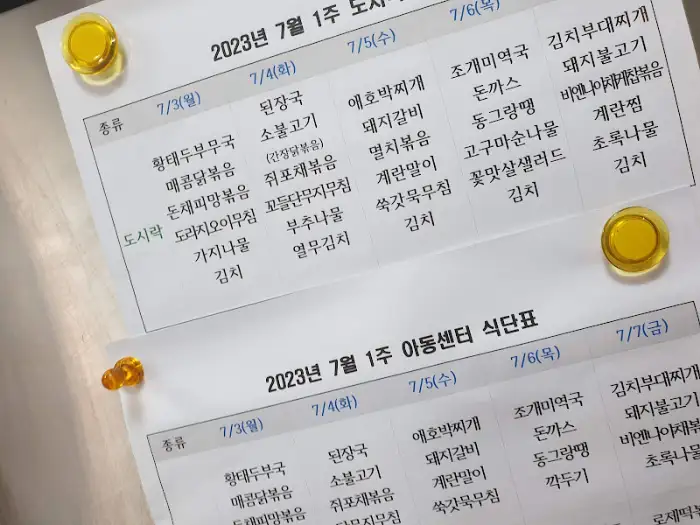 2023년 7월 1주 도시
종류 7/3(월) 7/4(화) 7/5(수) 7/6(목)
도시락
황태두부무국
매콤닭볶음
돈채피망볶음
도라지오이무침
가지나물
김치
된장국
소불고기
(간장닭볶음)
쥐포채볶음
꼬들단무지무침
부추나물
열무김치
애호박찌개
돼지갈비
멸치볶음
계란말이
쑥갓묵무침
김치
조개미역국
돈까스
동그랑땡
고구마순나물
꽃맛살샐러드
김치
김치부대찌개
돼지불고기
비엔나야채케찹볶음
계란찜
초록나물
김치
2023년 7월 1주 아동센터 식단표
종류 7/3(월) 7/4(화) 7/5(수) 7/6(목) 7/7(금)
황태두부국
매콤닭볶음
돈채피망볶음
된장국
소불고기
쥐포채볶음
단무지무침
애호박찌개
돼지갈비
계란말이
쑥갓묵무침
조개미역국
돈까스
동그랑땡
깍두기
김치부대찌개
돼지불고기
비엔나야채볶
초록나물
로제떡